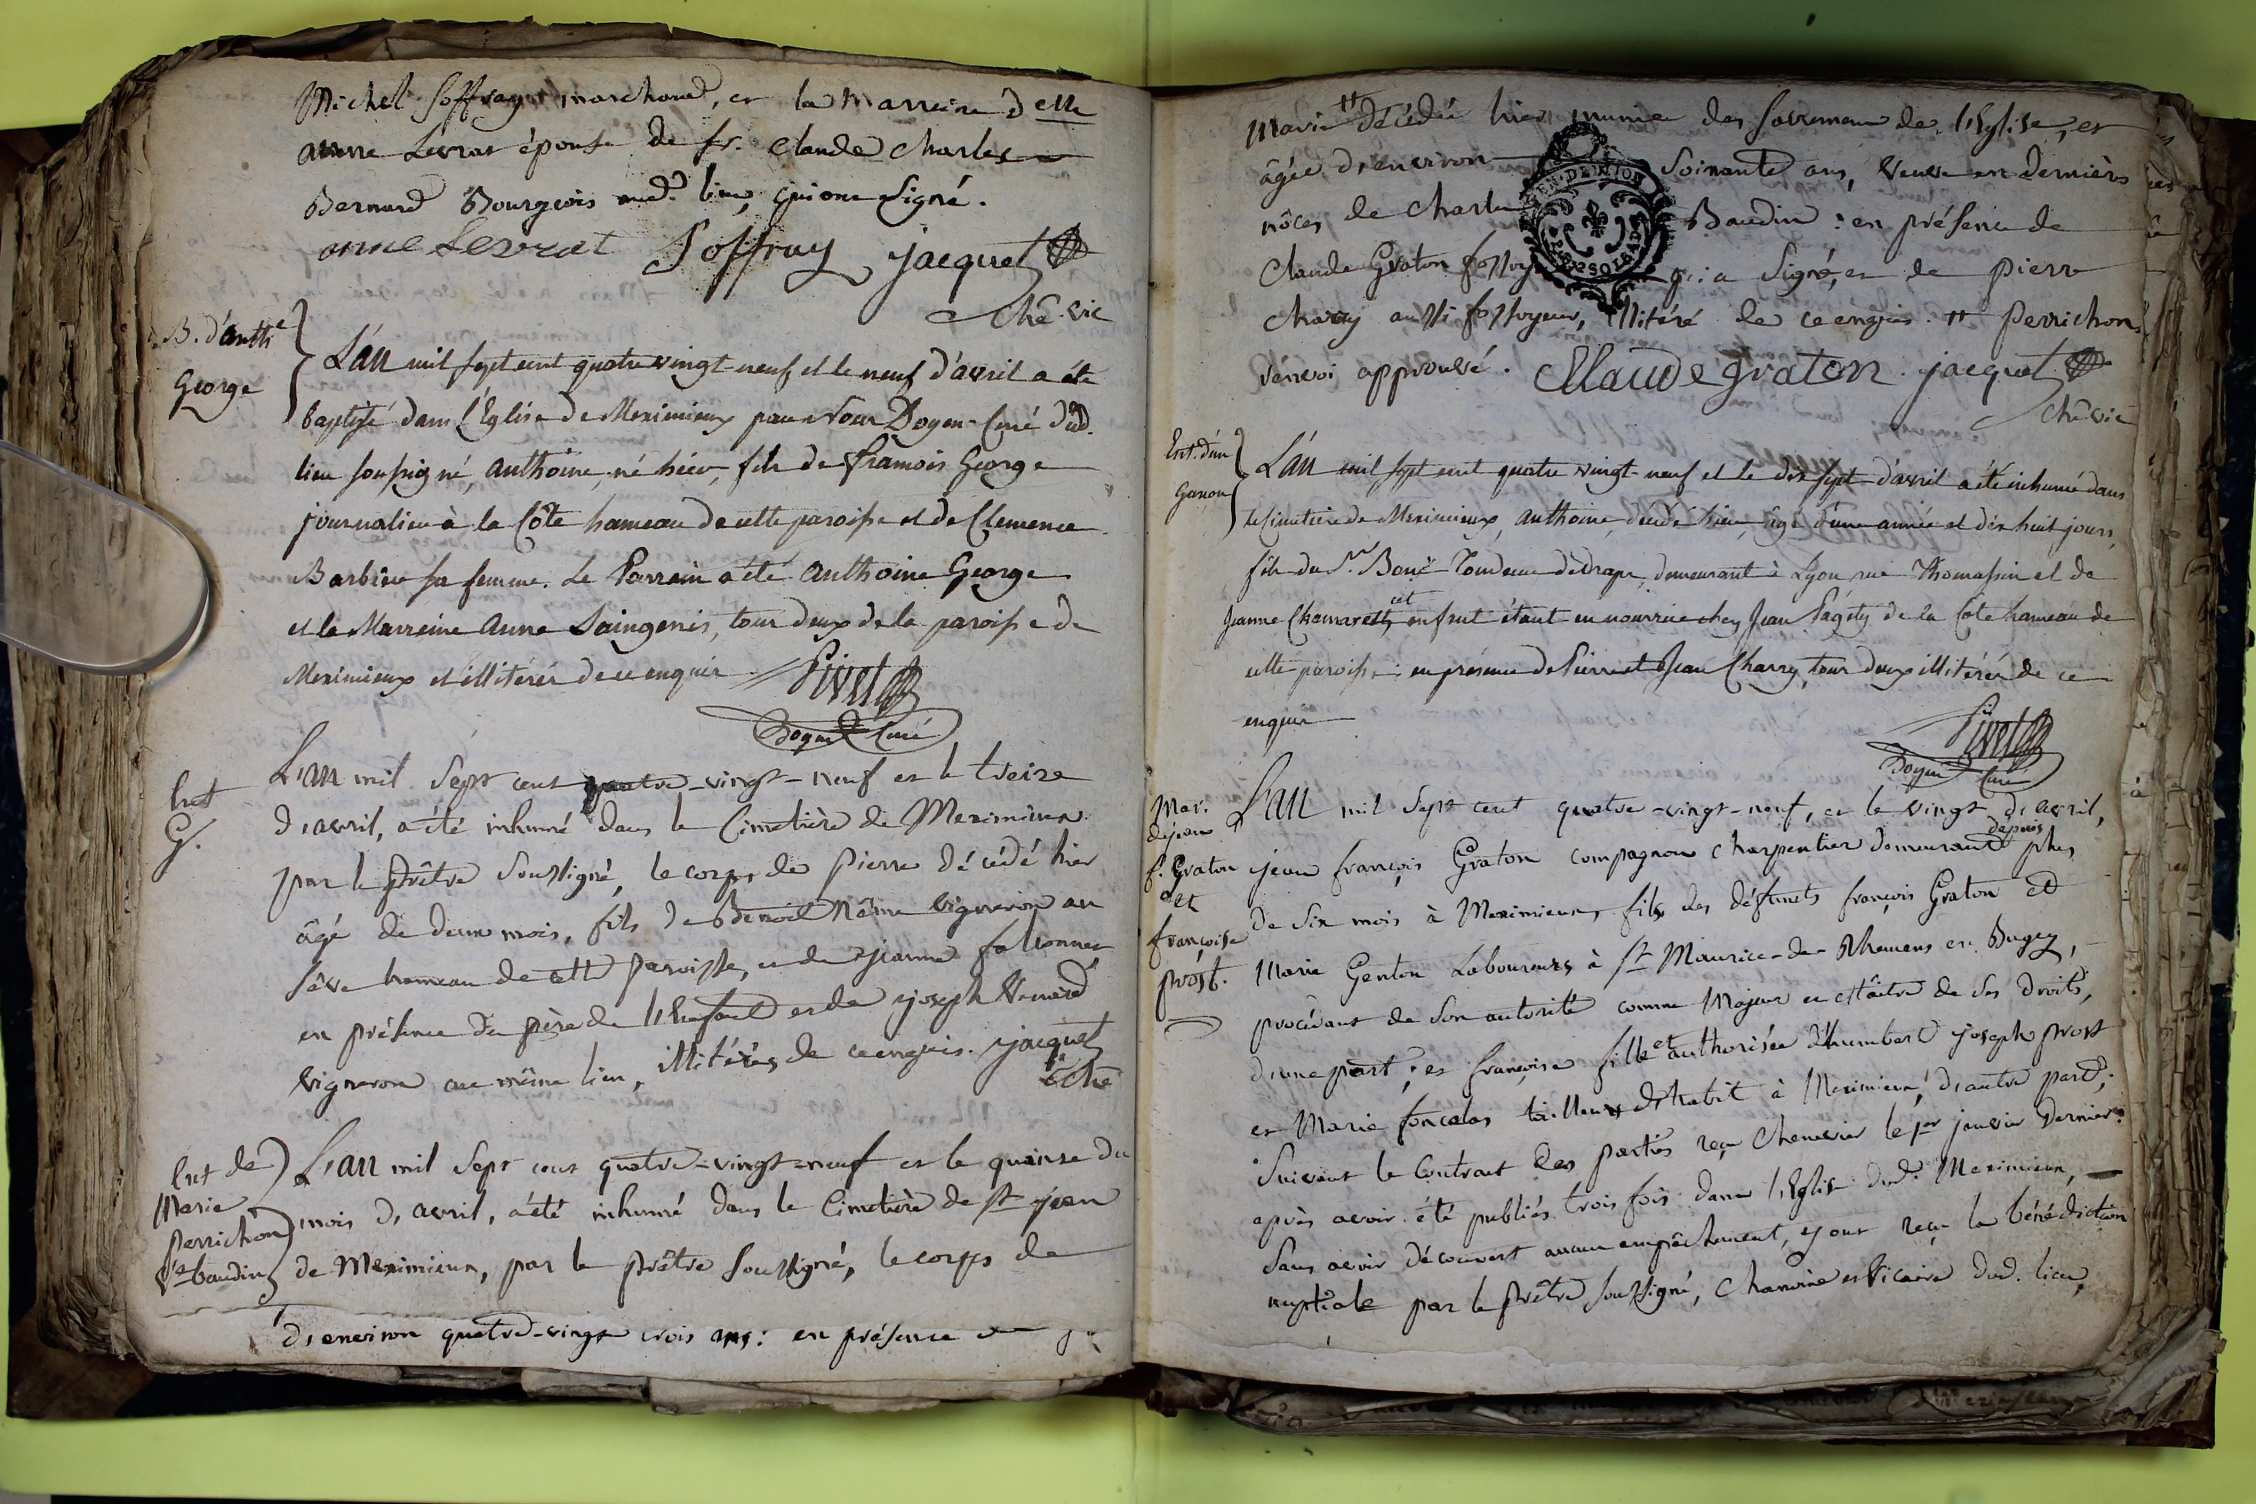 Michel Soffray marchand, et la Marreine d elle
anne Levrat épouse de sr. Claude Charles
Bernard Bourgeois aud. lieu, qui ont signé.
anne Levrat Soffray jacquet
chê. vic
B. d'anth^e
George
L'an mil sept cent quatre vingt-neuf et le neuf d'avril a été
baptisé dans l'Eglise de Meximieux par nous Doyen-Curé dud.
lieu soussigné, anthoine, né hier, fils de François George
journalier à la Côte hameau de cette paroisse et de Clemence
Barbier sa femme. Le Parrein a été anthoine George
et la Marreine anne Saingenis, tous deux de la paroisse de
Meximieux et illitérés de ce enquis
Pivet
Doyen Curé
Ent
G.
L'an mil sept cent quatre-vingt-neuf et le treize
d'avril, a été inhumé dans le Cimetière de Meximieux
par le prêtre soussigné, le corps de pierre décédé hier
âgé de deux mois, fils de Benoit vigneron au
hameau de cette paroisse, et de jeanne
en présence du père de l'Enfant et de joseph Venard
vigneron au même lieu, illitérés de ce enquis. jacquet
chê
Ent de
Marie
perrichon
v^e baudin
L'an mil sept cent quatre-vingt-neuf et le quinze du
mois d'avril, a été inhumé dans le Cimetière de st jean
de Meximieux, par le prêtre soussigné, le corps de
d'environ quatre-vingt trois ans: en présence
Marie décédée hier munie des sacremens de l'Eglise, et
âgée d'environ soixante ans, veuve en dernières
nôces de Charles Baudin: en présence de
Claude Graton fossoyeur qui a signé, et de pierre
Charry aussi fossoyeur, illitéré de ce enquis. perrichon
renvoi approuvé. Claude graton. jacquet
chê vic
Ent. d'an
Ganon
L'an mil sept cent quatre vingt-neuf et le dix sept d'avril a été inhumé dans
le cimetiere de Meximieux, anthoine, decedé hier, âgé d'une année et dix huit jours,
fils du Sr. Tondeur de drap, demeurant à Lyon rue Thomassin et de
Jeanne cet enfant étant en nourrice chez Jean Pagety de la Côte hameau de
cette paroisse: en présence de Pierre et Jean Charry, tous deux illitérés de ce
enquis
Pivet
Doyen Curé
Mar.
de jean
f. Graton
et
françoise
prost.
L'an mil sept cent quatre-vingt-neuf, et le vingt d'avril,
depuis
jean françois Graton compagnon charpentier demeurant plus
de six mois à Meximieux, fils des défunts françois Graton et
Marie Genton Laboureurs à st Maurice-de-Rhemens en Bugey,
procédant de son autorité comme Majeur et Maitre de ses droits,
d'une part; et françoise fille et authorisée d'humbert joseph prost
et Marie foncalas tailleur d'habit à Meximieux, d'autre part;
Suivant le Contract des parties reçu Chenevier le 1er janvier dernier:
après avoir été publiés trois fois dans l'Eglise dud. Meximieux,
Sans avoir découvert aucun empêchement, y ont reçu la bénédiction
nuptiale par le prêtre soussigné, Chanoine et Vicaire dud. lieu,